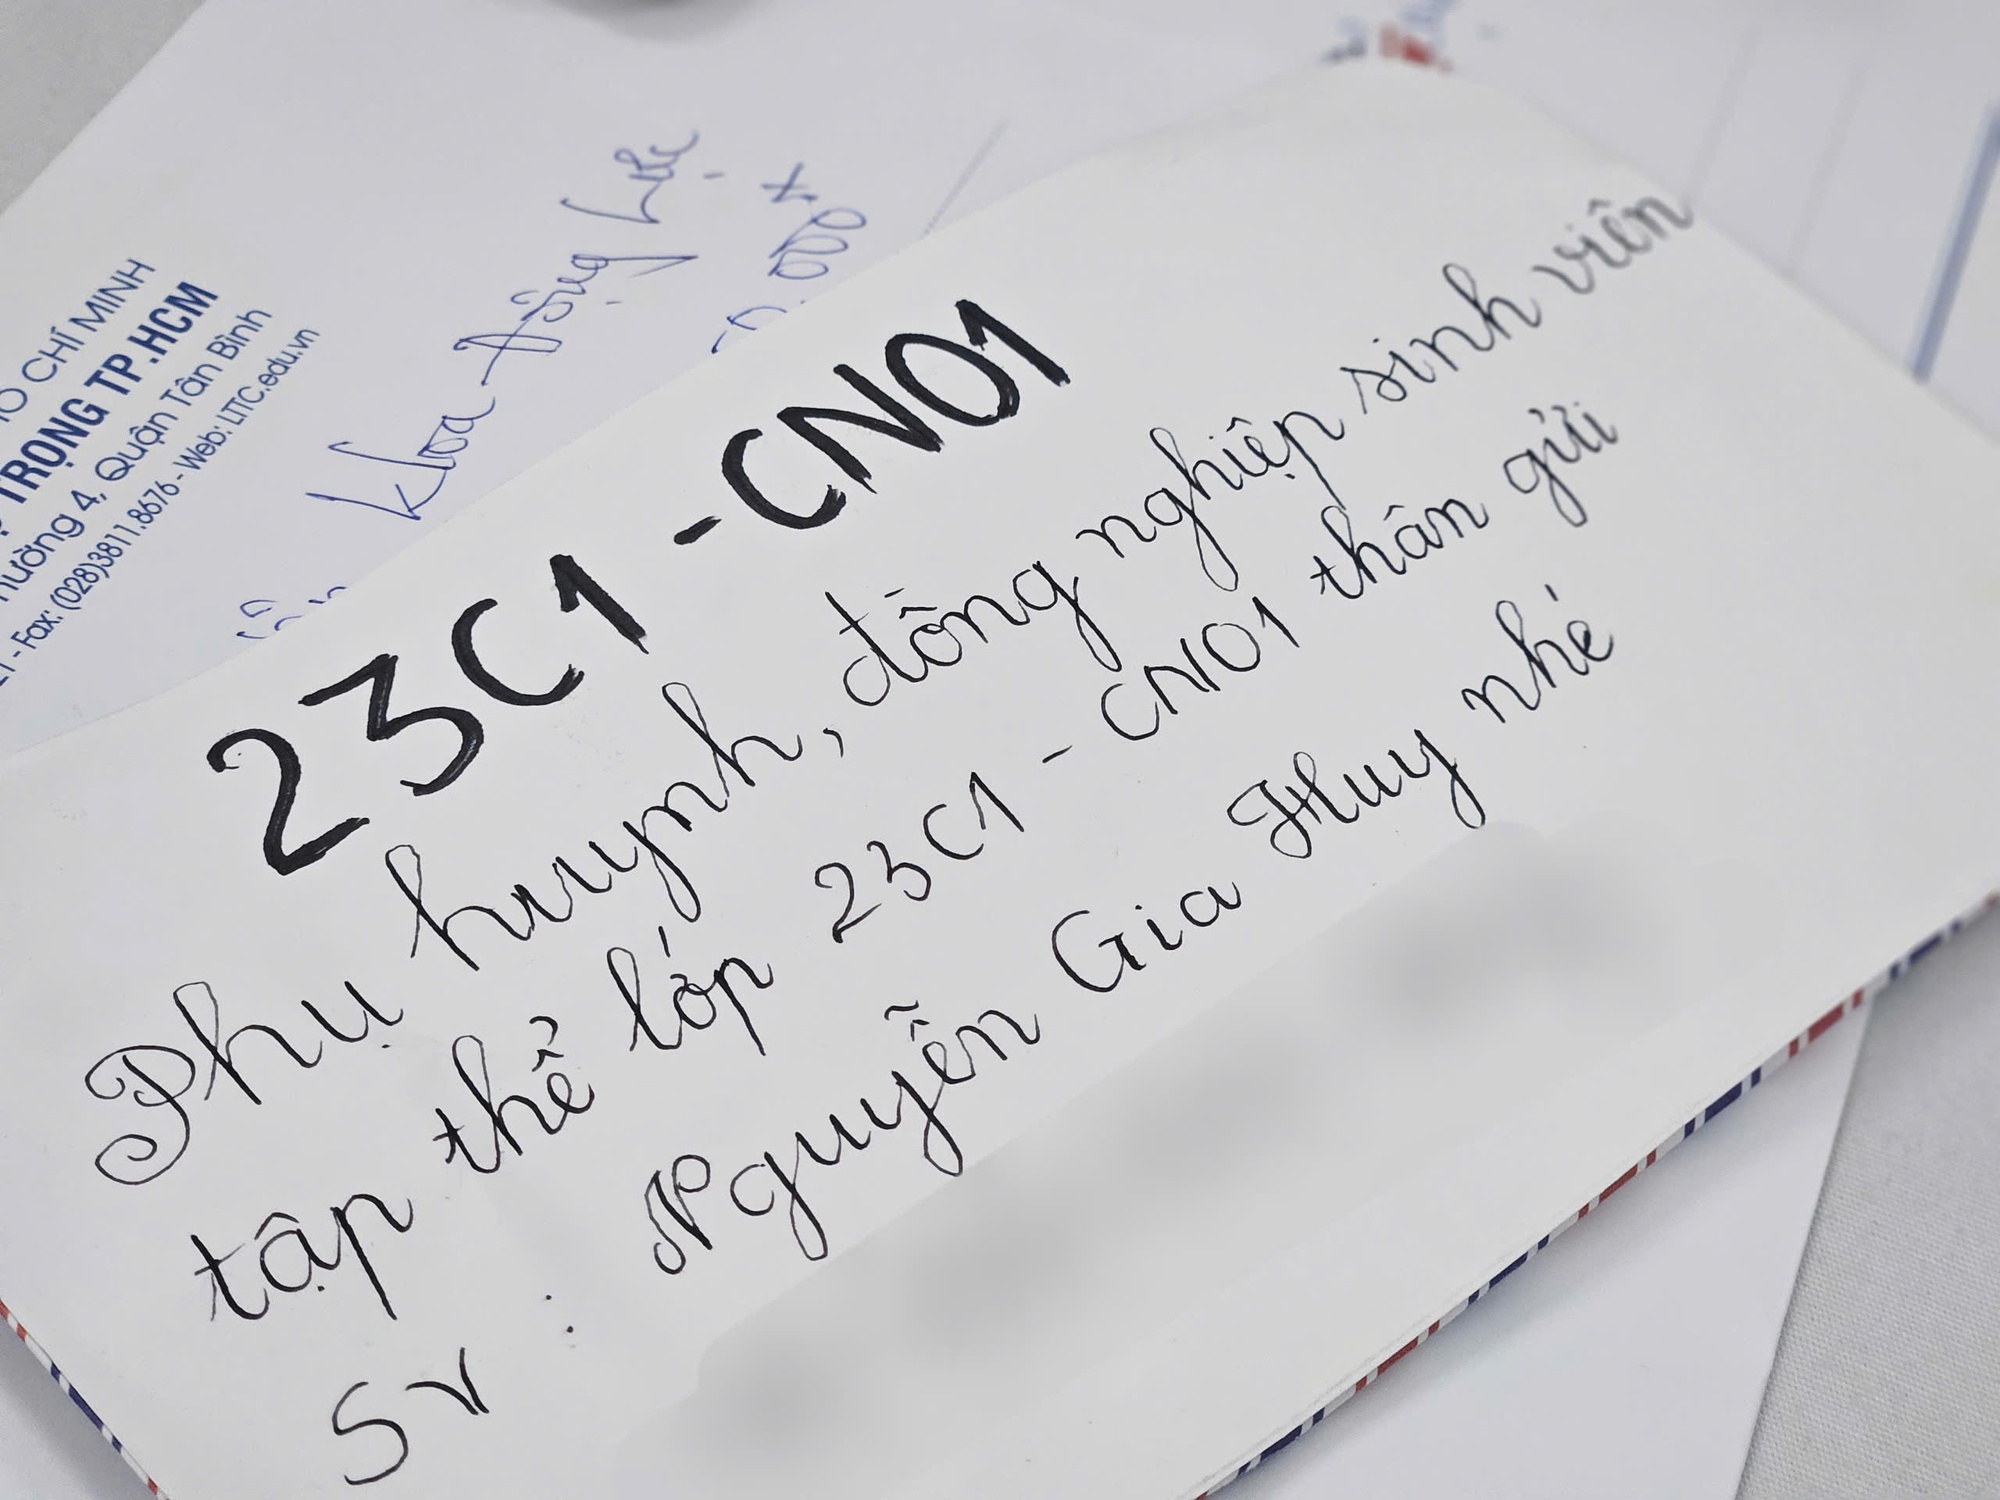 CHÍ MINH
TRỌNG TP.HCM
4, Quận Tân Bình
- Fax: (028)3811.8676 - Web: LTTC.edu.vn
Khoa Động Lực
23C1 - CN01
Phụ huynh, đồng nghiệp sinh viên
tập thể lớp 23C1 - CN01 thân gửi
Sv : Nguyễn Gia Huy nhé